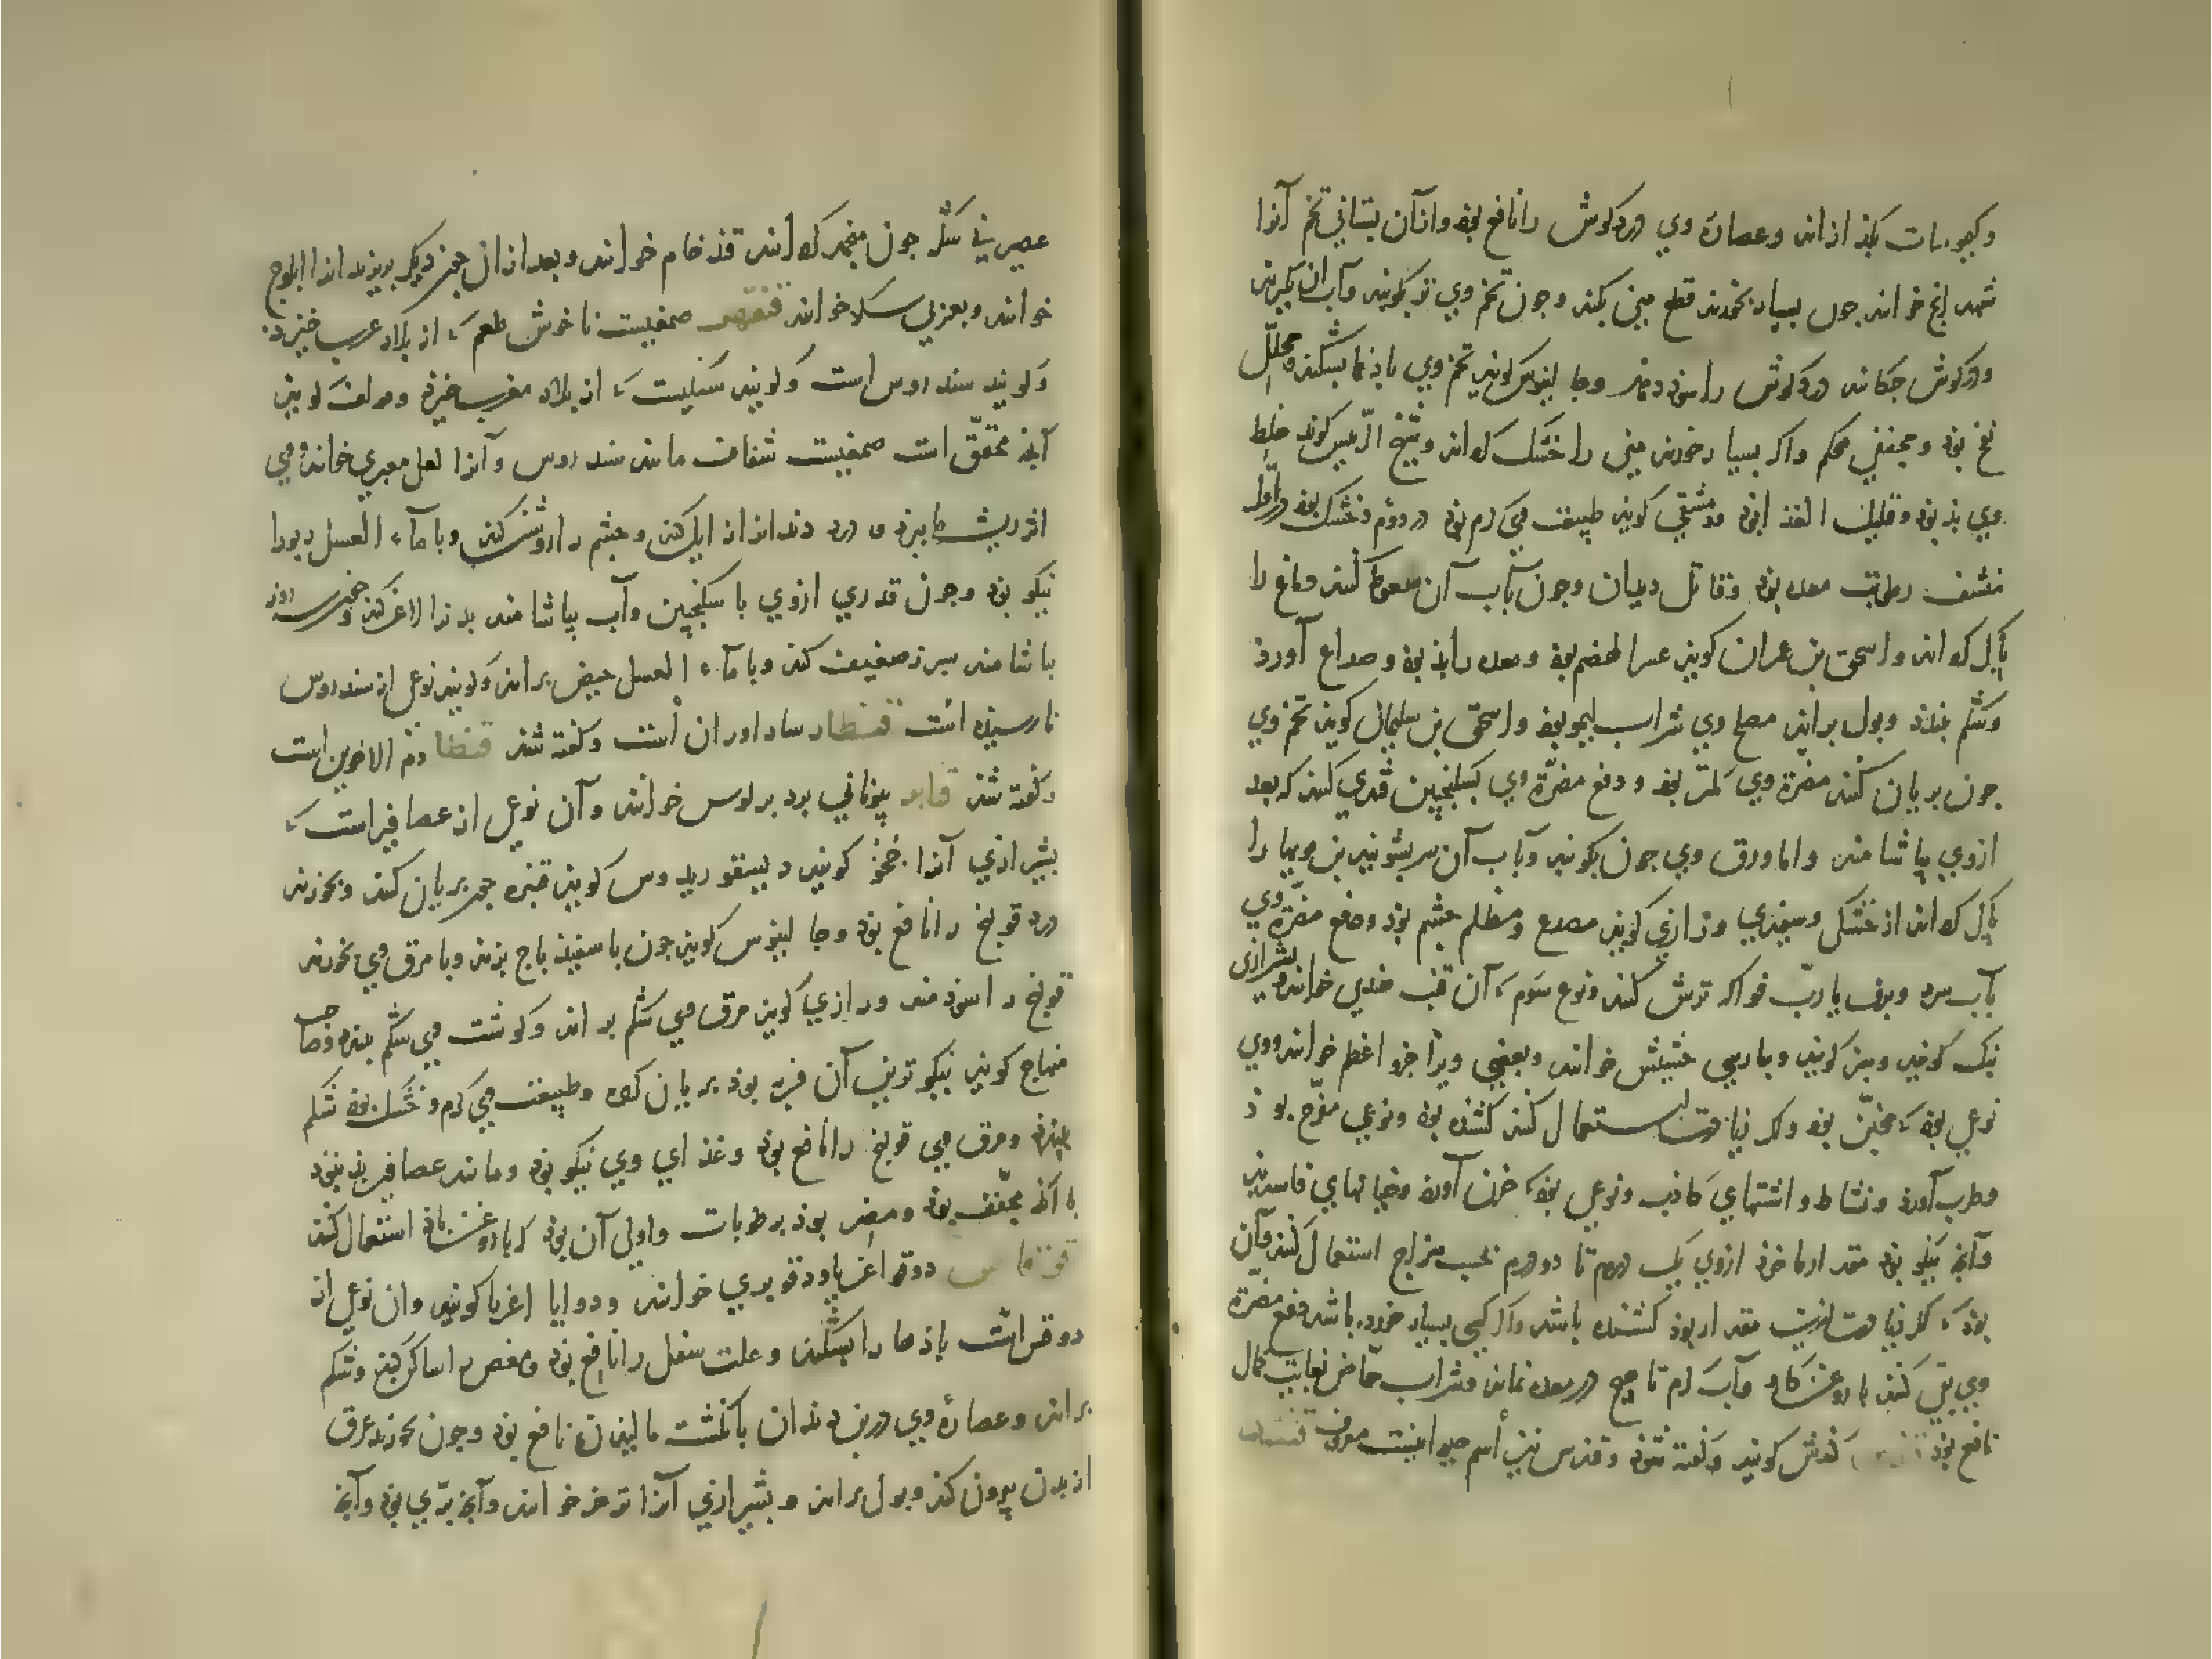 و کیموسات بگذازاند و عصارۀ وی درد گوش را نافع بود و از آن بستانی تخم آنرا
شهدانج خوانند جون بسیار بخورند قطع منی بکند و جون تخم وی تر بکوبند و آب آن بگیرند
و در گوش جکانند درد گوش را سود دهد و جالینوس گوید تخم وی بادها بشکند و محلّل
نفخ بود و مجففی محکم و اگر بسیار خورند منی را خشک گرداند و شیخ الرّئیس گوید خلط
وی بد بود و قلیل الغذا بود و دمشقی گوید طبیعت وی گرم بود در دوّم و خشک بود در اوّل
منشف رطوبت معده بود و قاتل دیدان و جون بآب آن سعوط کنند دماغ را
پاک گرداند و اسحق بن عمران گوید عسر الهضم بود و معده را بد بود و صداع آورد
و شکم ببندد و بول براند مصلح وی شراب لیمو بود و اسحق بن سلیمان گوید تخم وی
جون بریان کنند مضرّة وی کمتر بود و دفع مضرّة وی بسکنجبین قندی کنند که بعد
ازوی بیاشامند و اما ورق وی جون بکوبند و بآب آن سر بشویند بن مویها را
پاک گرداند از خشکی و سپیدی و رازی گوید مصدع و مظلم جشم بود و دفع مضرّة وی
بآب سرد و برف یا ربّ فواکه ترش کنند و نوع سوم که آن قنب هندی خوانند و بشیرازی
بنک گویند و سبز گویند و بپارسی حشیش خوانند و بعضی ویرا جزو اعظم خوانند و وی
نوعی بود که مخبّن بود و اگر زیادت استعمال کنند کشنده بود و نوعی مفرّح بود
و طرب آورد و نشاط و اشتهای کاذب و نوعی بود که حزن آورد و خیالهای فاسد بد
و آنج نیکو بود مقدار ماخوذ ازوی یک درم تا دو درم بحسب مزاج استعمال کنند و آن
بود که اگر زیادت ازین مقدار بود کشنده باشد و اگر کسی بسیار خورده باشد دفع مضرّة
وی بقی کنند با روغن گاو و آب گرم تا هیج در معده نماند و شراب حمّاض بغایت کمال
نافع بود کندش گویند و گفته شود و قندس نیز اسم حیوانیست معروف قند
عصیر نی شکر جون منجمد گردانند قند خام خوانند و بعد از آن جون دیگر بریزند انرا ابلوج
خوانند و بعربی سکر خوانند قنقهر صمغیست ناخوش طعم که از بلاد عرب خیزد
و گویند سندروس است و گویند سنگیست که از بلاد مغرب خیزد و مولف گوید
آنج محقّق است صمغیست شفاف مانند سندروس و آنرا لعل معبری خوانند وی
اثر ریشها ببرد و درد دندان زایل کند و جشم را روشن کند و با ماء العسل ربو را
نیکو بود و جون قدری ازوی با سکنجبین و آب بیاشامند بدن را لاغر کند و جون سه روز
بیاشامند سپرز ضعیف کند و با ماء العسل حیض براند و گویند نوعی از سندروس
نارسیده است قنطار ساداوران است و گفته شد قنطا دم الاخوین است
و گفته شد قنابر بیونانی بردبرلوس خوانند و آن نوعی از عصافیر است که
بشیرازی آنرا جخو گویند دیسقوریدوس گوید قنبره جون بریان کنند و بخورند
درد قولنج را نافع بود و جالینوس گوید جون باسفیدباج بزند و با مرق وی بخورند
قولنج را سود مند و رازی گوید مرق وی شکم براند و گوشت وی شکم ببندد و صاحب
منهاج گوید نیکوترین آن فربه بود بریان کرده و طبیعت وی گرم و خشک بود شکم
ببندد و مرق وی قولنج را نافع بود و غذای وی نیکو بود و مانند عصافیر بد نبود
با آنک مجفّف بود و مضر بود برطوبات و اولی آن بود که با روغن بادام استعمال کنند
دوقو اغریا و دوقو بری خوانند و دوایا اغریا گویند و ان نوعی از
دوقس است بادها را بشکند و علت سفل را نافع بود و مغص را ساکن کند و شکم
براند و عصارۀ وی در بن دندان بانگشت مالیدن نافع بود و جون بخورند عرق
از بدن بیرون کند و بول براند و بشیرازی آنرا ترخز خوانند و آنج برّی بود و آنج